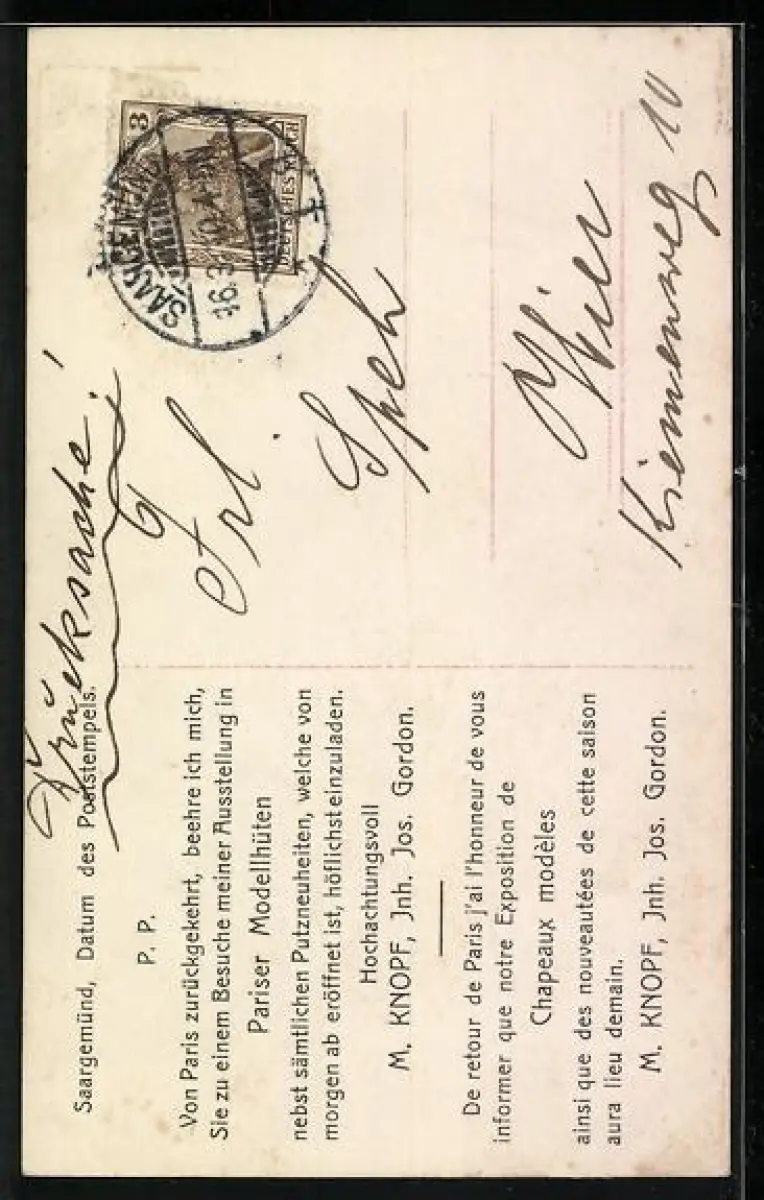 Saargemünd, Datum des Poststempels.
P. P.
Von Paris zurückgekehrt, beehre ich mich,
Sie zu einem Besuche meiner Ausstellung in
Pariser Modellhüten
nebst sämtlichen Putzneuheiten, welche von
morgen ab eröffnet ist, höflichst einzuladen.
Hochachtungsvoll
M. KNOPF, Jnh. Jos. Gordon.
De retour de Paris j'ai l'honneur de vous
informer que notre Exposition de
Chapeaux modèles
ainsi que des nouveautées de cette saison
aura lieu demain.
M. KNOPF, Jnh. Jos. Gordon.
Drucksache!
3
DEUTSCHES REICH
SAARGEMÜND
16.3
Frl.
Speh
Hier
10